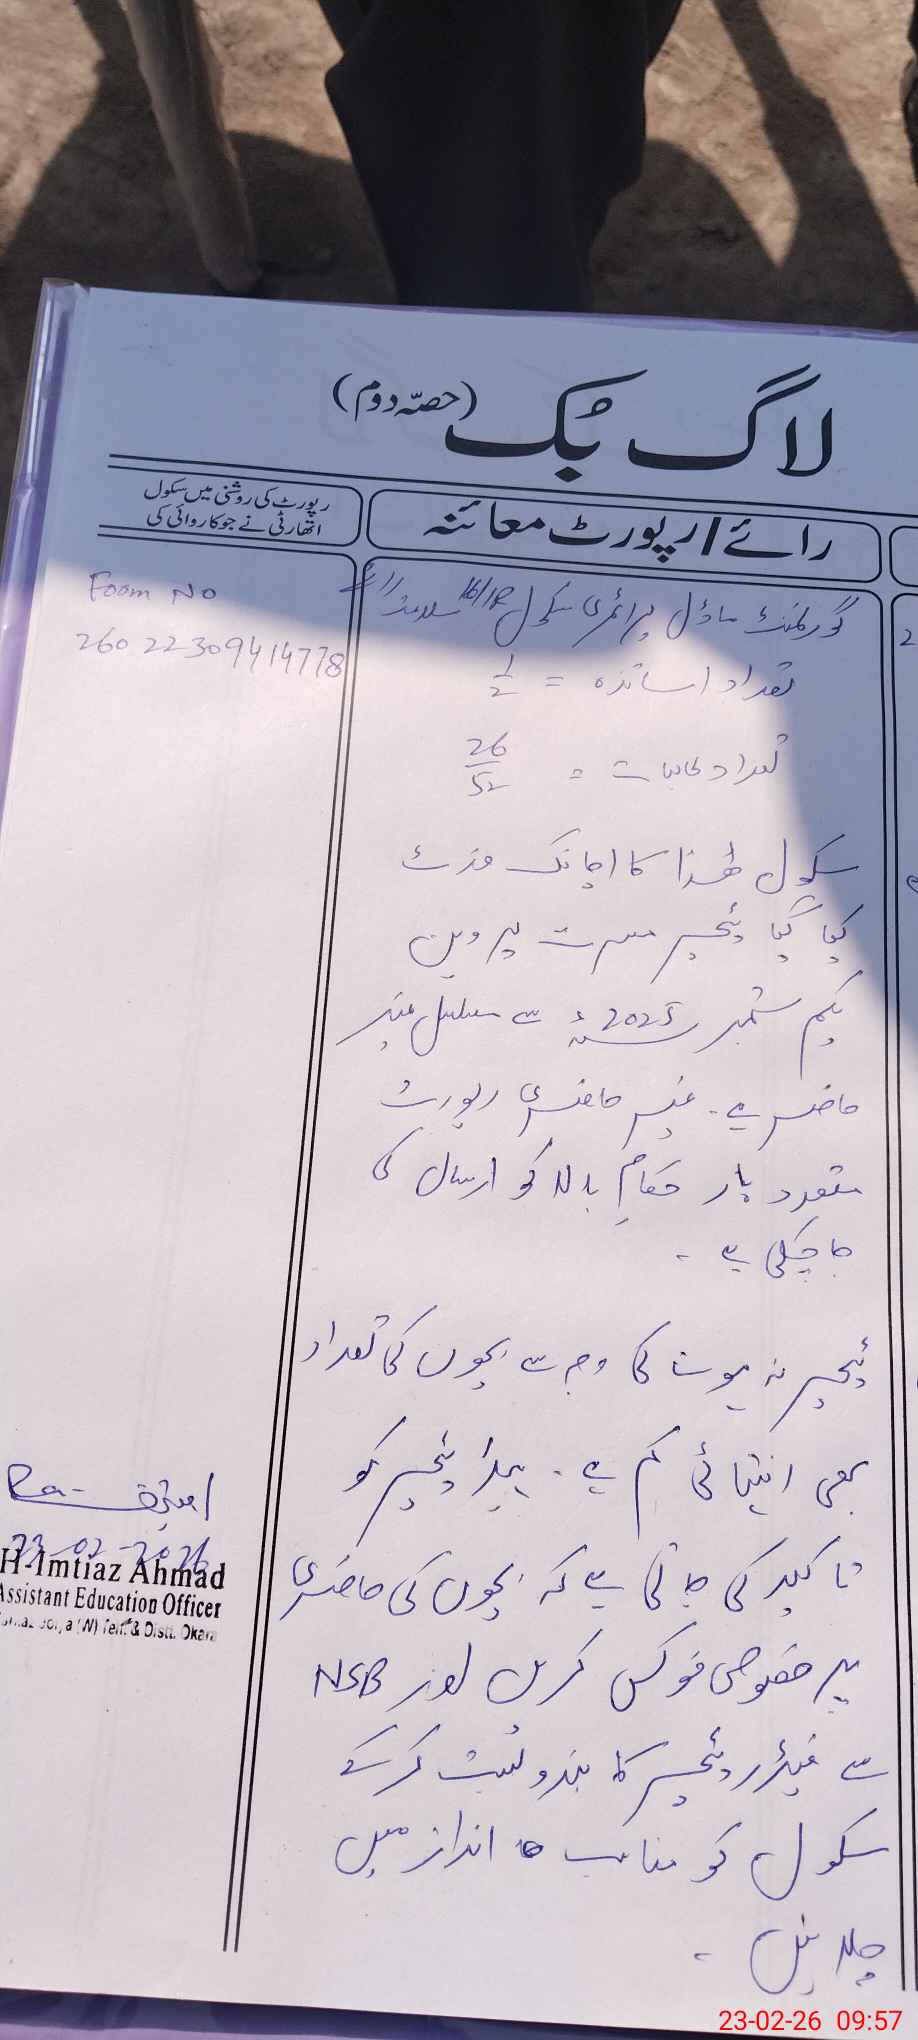 لاگ بُک (حصّہ دوم)
رائے/رپورٹ معائنہ
رپورٹ کی روشنی میں سکول
اتھارٹی نے جو کاروائی کی
گورنمنٹ ماڈل پرائمری سکول 16/1R
تعداد اساتذہ = 1/2
تعداد طالبات = 26/52
سکول ھٰذا کا اچانک وزٹ
کیا گیا ٹیچر مسرت پروین
یکم ستمبر 2025ء سے مسلسل غیر
حاضر ہے۔ غیر حاضری رپورٹ
متعدد بار حکام بالا کو ارسال کی
جا چکی ہے۔
ٹیچر نہ ہونے کی وجہ سے بچوں کی تعداد
بھی انتہائی کم ہے۔ ہیڈ ٹیچر کو
تاکید کی جاتی ہے کہ بچوں کی حاضری
پر خصوصی فوکس کریں اور NSB
سے ٹیچر کا بندوبست کر کے
سکول کو مناسب انداز میں
چلائیں۔
Foom No
260 22309414778
23-02-2026
H-Imtiaz Ahmad
Assistant Education Officer
(W) Teh: & Distt. Okara
23-02-26 09:57